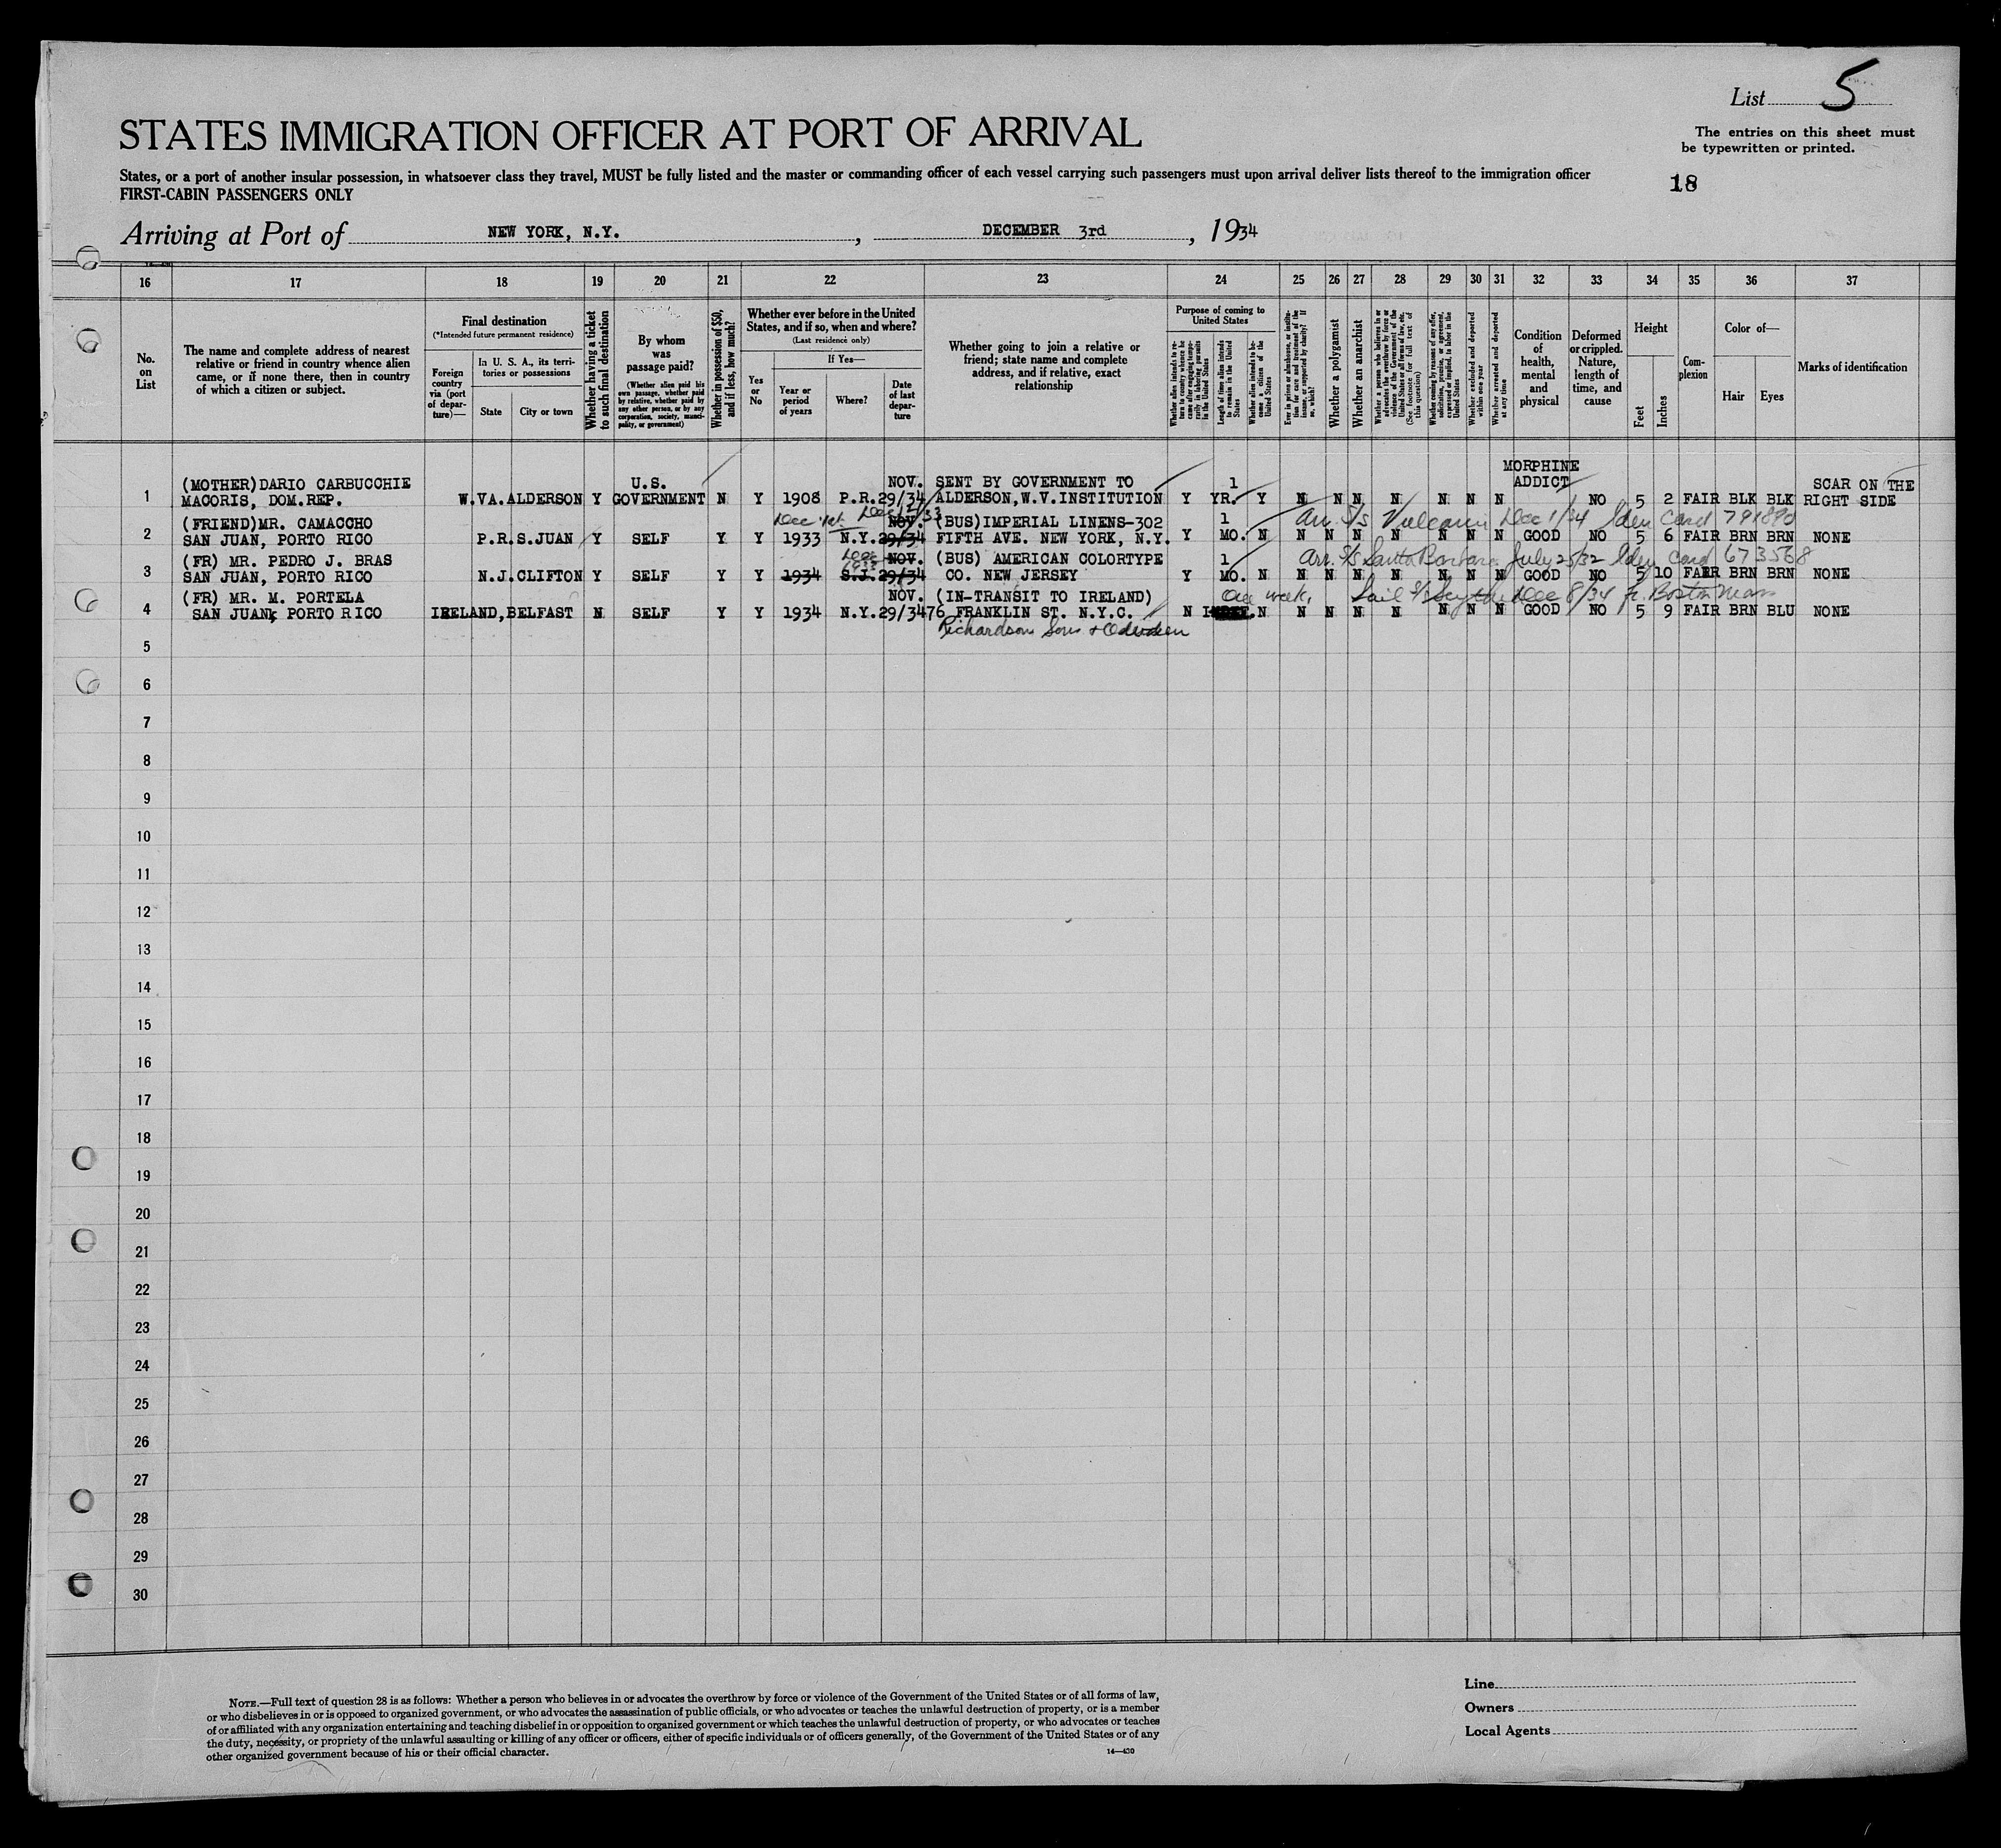 List 5
STATES IMMIGRATION OFFICER AT PORT OF ARRIVAL
The entries on this sheet must
be typewritten or printed.
States, or a port of another insular possession, in whatsoever class they travel, MUST be fully listed and the master or commanding officer of each vessel carrying such passengers must upon arrival deliver lists thereof to the immigration officer
FIRST-CABIN PASSENGERS ONLY
18
Arriving at Port of NEW YORK, N.Y. , DECEMBER 3rd , 1934
16 17 18 19 20 21 22 23 24 25 26 27 28 29 30 31 32 33 34 35 36 37
No.
on
List
The name and complete address of nearest
relative or friend in country whence alien
came, or if none there, then in country
of which a citizen or subject.
Final destination
(*Intended future permanent residence)
Foreign
country
via (port
of depar-
ture)—
In U. S. A., its terri-
tories or possessions
State
City or town
Whether having a ticket
to such final destination
By whom
was
passage paid?
(Whether alien paid his
own passage, whether paid
by relative, whether paid by
any other person, or by any
corporation, society, munici-
pality, or government)
Whether in possession of $50,
and if less, how much?
Whether ever before in the United
States, and if so, when and where?
(Last residence only)
Yes
or
No
If Yes—
Year or
period
of years
Where?
Date
of last
depar-
ture
Whether going to join a relative or
friend; state name and complete
address, and if relative, exact
relationship
Purpose of coming to
United States
Whether alien intends to re-
turn to country whence he
came after engaging tempo-
rarily in laboring pursuits
in the United States
Length of time alien intends
to remain in the United
States
Whether alien intends to be-
come a citizen of the
United States
Ever in prison or almshouse, or institu-
tion for care and treatment of the
insane, or supported by charity? If
so, which?
Whether a polygamist
Whether an anarchist
Whether a person who believes in or
advocates the overthrow by force or
violence of the Government of the
United States or all forms of law, etc.
(See footnote for full text of
this question)
Whether coming by reasons of any offer,
solicitation, promise, or agreement,
expressed or implied, to labor in the
United States
Whether excluded and deported
within one year
Whether arrested and deported
at any time
Condition
of
health,
mental
and
physical
Deformed
or crippled.
Nature,
length of
time, and
cause
Height
Feet
Inches
Com-
plexion
Color of—
Hair
Eyes
Marks of identification
MORPHINE
(MOTHER)DARIO CARBUCCHIE U.S. NOV. SENT BY GOVERNMENT TO 1 ADDICT SCAR ON THE
1 MACORIS, DOM.REP. W.VA.ALDERSON Y GOVERNMENT N Y 1908 P.R.29/34 ALDERSON,W.V.INSTITUTION Y YR. Y N N N N N N N NO 5 2 FAIR BLK BLK RIGHT SIDE
Dec 12/33
(FRIEND)MR. CAMACCHO NOV. (BUS)IMPERIAL LINENS-302 1 Arr. S/S Vulcania Dec 1/34 Iden Card 791890
2 SAN JUAN, PORTO RICO P.R.S.JUAN Y SELF Y Y 1933 N.Y.29/34 FIFTH AVE. NEW YORK, N.Y. Y MO. N N N N N N N N GOOD NO 5 6 FAIR BRN BRN NONE
(FR) MR. PEDRO J. BRAS NOV. (BUS) AMERICAN COLORTYPE 1 Arr. S/S Santa Barbara July 25/32 Iden Card 673568
3 SAN JUAN, PORTO RICO N.J.CLIFTON Y SELF Y Y 1934 S.J.29/34 CO. NEW JERSEY Y MO. N N N N N N N N GOOD NO 5 10 FAIR BRN BRN NONE
(FR) MR. M. PORTELA NOV. (IN-TRANSIT TO IRELAND) One week, Sail S/S Scythia Dec 8/34 fr. Boston Mass
4 SAN JUAN, PORTO RICO IRELAND,BELFAST N SELF Y Y 1934 N.Y.29/34 76 FRANKLIN ST. N.Y.C. N N N N N N N N N GOOD NO 5 9 FAIR BRN BLU NONE
Richardson Sons &
5
6
7
8
9
10
11
12
13
14
15
16
17
18
19
20
21
22
23
24
25
26
27
28
29
30
NOTE.—Full text of question 28 is as follows: Whether a person who believes in or advocates the overthrow by force or violence of the Government of the United States or of all forms of law,
or who disbelieves in or is opposed to organized government, or who advocates the assassination of public officials, or who advocates or teaches the unlawful destruction of property, or is a member
of or affiliated with any organization entertaining and teaching disbelief in or opposition to organized government or which teaches the unlawful destruction of property, or who advocates or teaches
the duty, necessity, or propriety of the unlawful assaulting or killing of any officer or officers, either of specific individuals or of officers generally, of the Government of the United States or of any
other organized government because of his or their official character.
14—430
Line
Owners
Local Agents